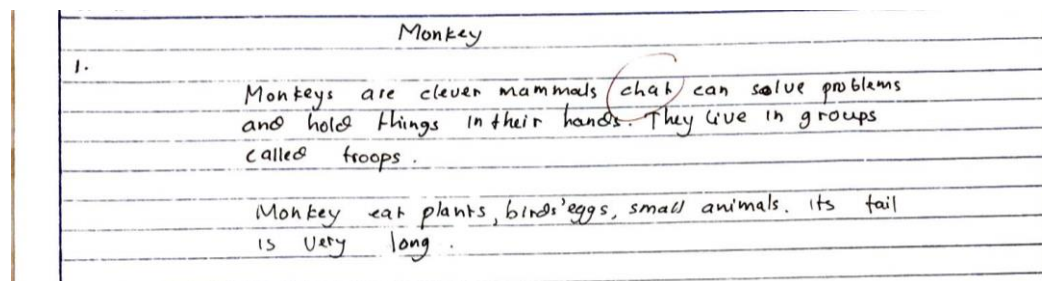 Monkey
1.
Monkeys are clever mammals chat can solve problems
and hold things in their hands. They live in groups
called troops.
Monkey eat plants, birds' eggs, small animals. its tail
is very long.